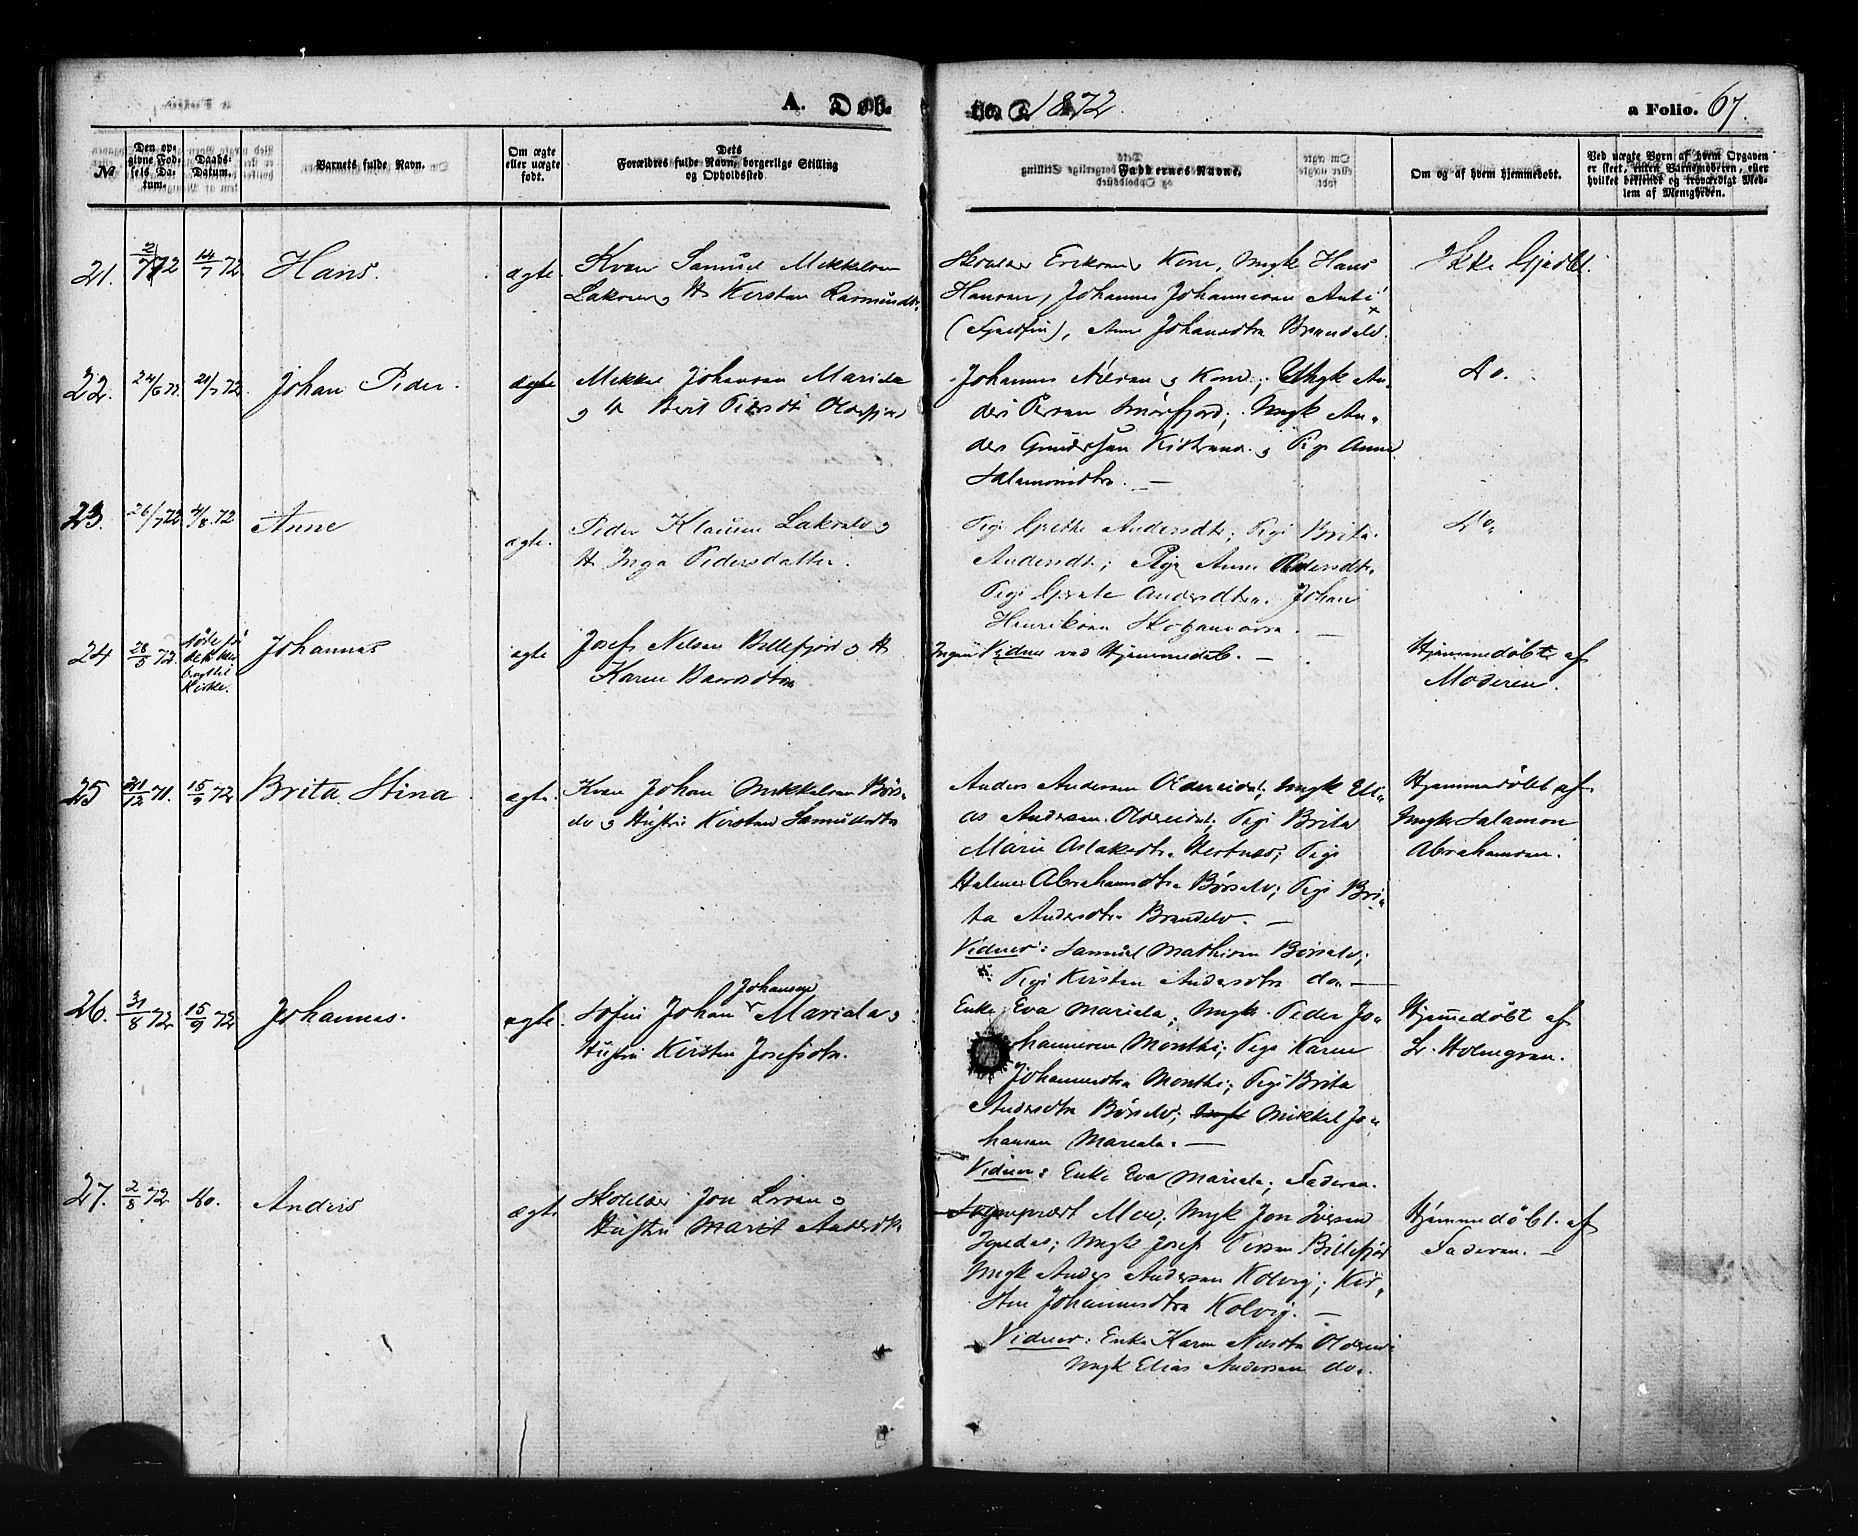 A. Døb. 1872. a Folio. 67.
No
Den opgivne Fødsels Datum.
Daabs-Datum.
Barnets fulde Navn.
Om ægte eller uægte født.
Dets Forældres fulde Navn, borgerlige Stilling og Opholdssted.
Faddernes Navne.
Om og af hvem hjemmedøbt.
Ved uægte Børn af hvem Opgaven er skeet, enten Barnemoderen, eller hvilket bekjendt og troværdigt Medlem af Menigheden.
21. 2/7 72 14/7 72 Hans. ægte.
Kvæn Samuel Mikkelsen
Lakselv og H. Kirsten Rasmusdtr.
Erikson Kone, Ungk Hans
Hansen, Johannes Johannesen Anti
Anne Johansdtr Brændelv.
Ikke hjdbt.
22. 24/6 72. 21/7 72. Johan Peder. ægte
Mikkel Johansen Mariela
og H Berit Piersdt Olderfjord
Johannes Nilsen og Kone; Ungk An-
ders Persen Smørfjord; Ungk An-
ders Gundersen Kistrand og Pige Anne
Salamonsdtr. —
Do.
23. 26/7 72 4/8 72 Anne ægte.
Peder Klausen Lakselv og
H Inga Pedersdatter.
Pige Grethe Andersdtr; Pige Brita
Andersdt; Pige Anne Pedersdtr
Pige Grete Andersdtr. Johan
Henriksen Skoganvarra. —
Do.
24 28/5 72. døde før det blev bragt til Kirke. Johannes ægte
Josef Nilsen Billefjord og H
Karen Baardsdtr
Ingen Vidner ved Hjemmedåb. —
Hjemmedøbt af
Moderen.
25 21/12 71. 15/9 72 Brita Stina ægte.
Kvæn Johan Mikkelsen Børs-
elv og Hustru Kirsten Samuelsdtr
Anders Andersen Oldereidet; Ungk Eli-
as Andersen Oldereidet; Pige Brita
Marie Aslaksdtr Hestnes; Pige
Helene Abrahamsdtr Børselv; Pige Bri-
ta Andersdtr Brændelv. —
Vidner: Samuel Mathisen Børselv;
Pige Kirsten Andersdtr do. —
Hjemmedøbt af
Ungk Salamon
Abrahamsen.
26. 31/8 72 15/9 72 Johannes. ægte.
Søfin Johan Johansen Mariela og
Hustru Kirsten Josefsdtr.
Enke Eva Mariela; Ungk Peder Jo-
hannesen Monthi; Pige Karen
Johannesdtr Monthi; Pige Brita
Andersdtr Børselv; Ungk Mikkel Jo-
hansen Mariela. —
Vidner: Enke Eva Mariela; Faderen.
Hjemedøbt af
Lr. Holmgren.
27. 2/8 72 Do. Anders ægte
Skolelær Jon Larsen og
Hustru Maret Andersdtr
Sogneprest Moe; Ungk Jon Iversen
Igeldas; Ungk Josef Persen Billefjord
Ungk Anders Andersen Kolvig; Kir-
sten Johannesdtra Kolvig. —
Vidner: Enke Karen Nilsdtr Oldereid
Ungk Elias Andersen do.
Hjemmedøbt af
Faderen. —